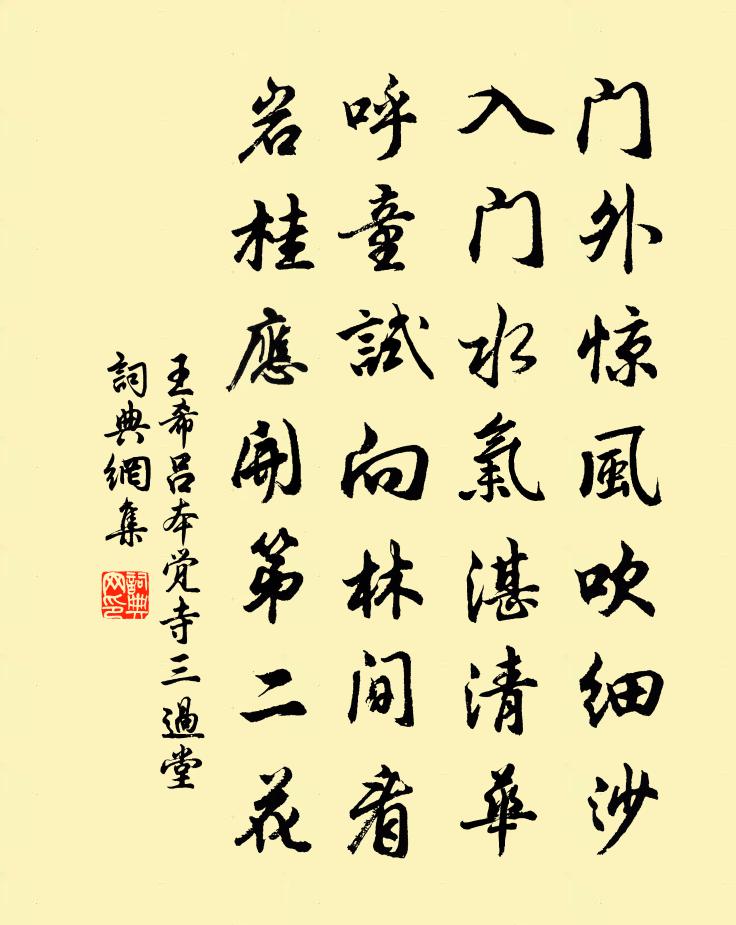 门外惊風吹细沙
入门水氣湛清華
呼童試向林间看
岩桂應開第二花
王希呂本覚寺三過堂
詞典網集
詞典網印